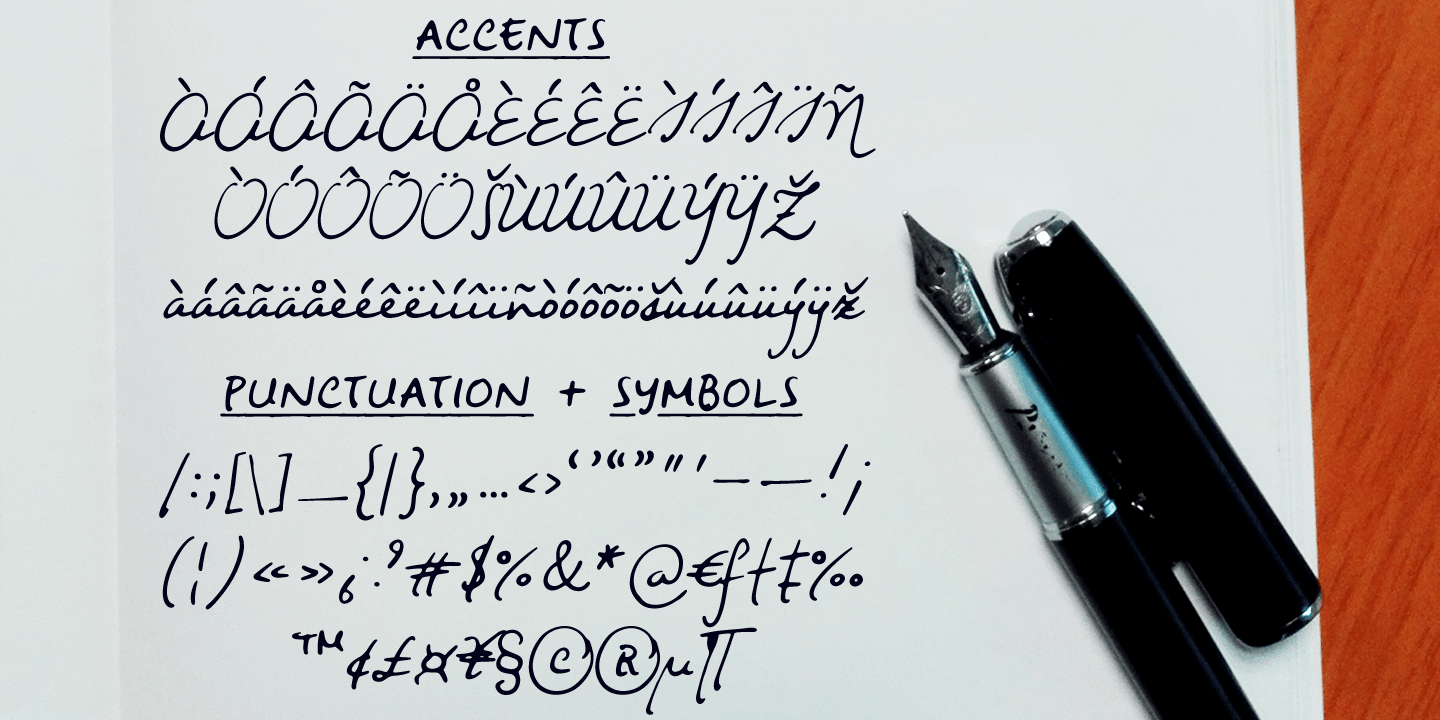 ACCENTS
ÀÁÂÃÄÅÈÉÊËÌÍÎÏÑ
ÒÓÔÕÖŠÙÚÛÜÝŸŽ
àáâãäåèéêëìíîïñòóôõöšùúûüýÿž
PUNCTUATION + SYMBOLS
/:;[\]_{|},„…‹›‘’“”"'–—!¡
(¦)«»¿?#$%&*@€ƒ†‡‰
™¢£¤¥§©®µ¶